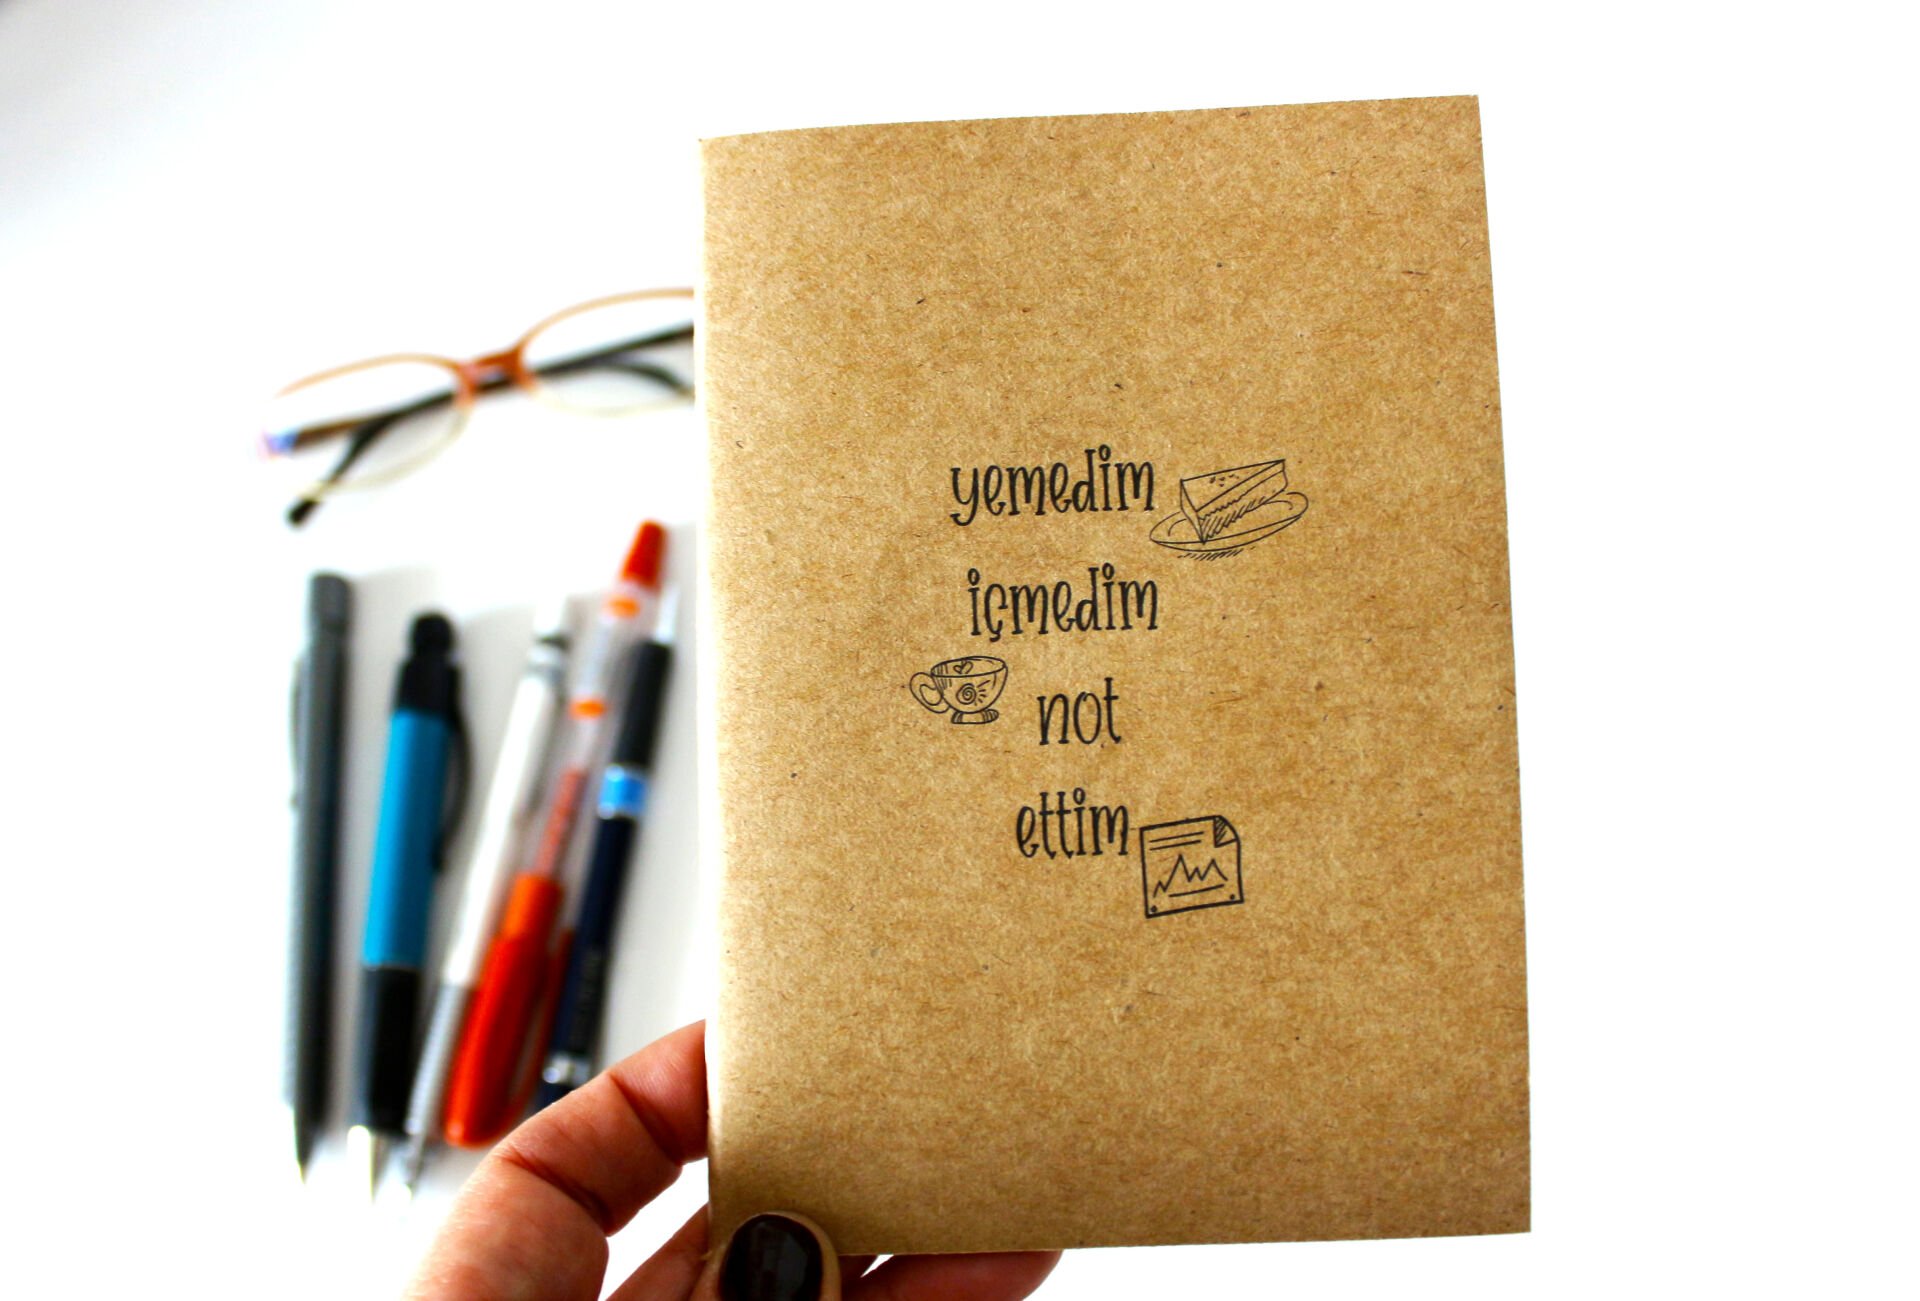 yemedim
içmedim
not
ettim